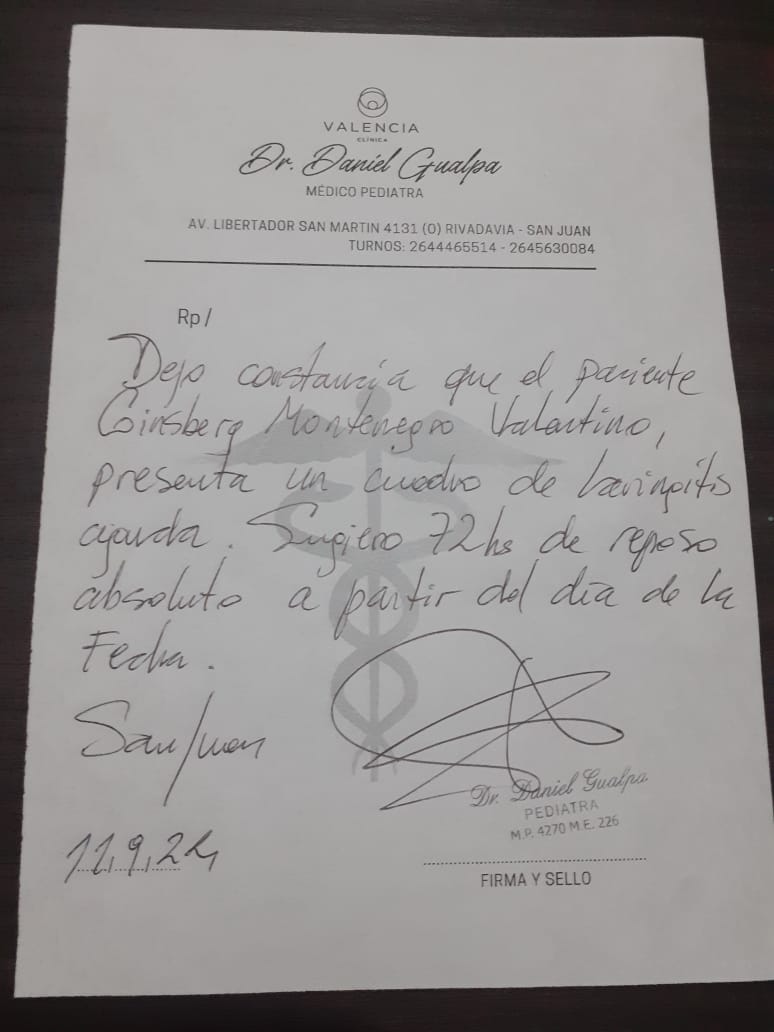 VALENCIA
CLÍNICA
Dr. Daniel Gualpa
MÉDICO PEDIATRA
AV. LIBERTADOR SAN MARTIN 4131 (O) RIVADAVIA - SAN JUAN
TURNOS: 2644465514 - 2645630084
Rp/
Dejo constancia que el paciente
Ginsberg Montenegro Valentino,
presenta un cuadro de Laringitis
aguda. Sugiero 72hs de reposo
absoluto a partir del día de la
Fecha.
San Juan
Dr. Daniel Gualpa
PEDIATRA
M.P. 4270 M.E. 226
11,9,24
FIRMA Y SELLO